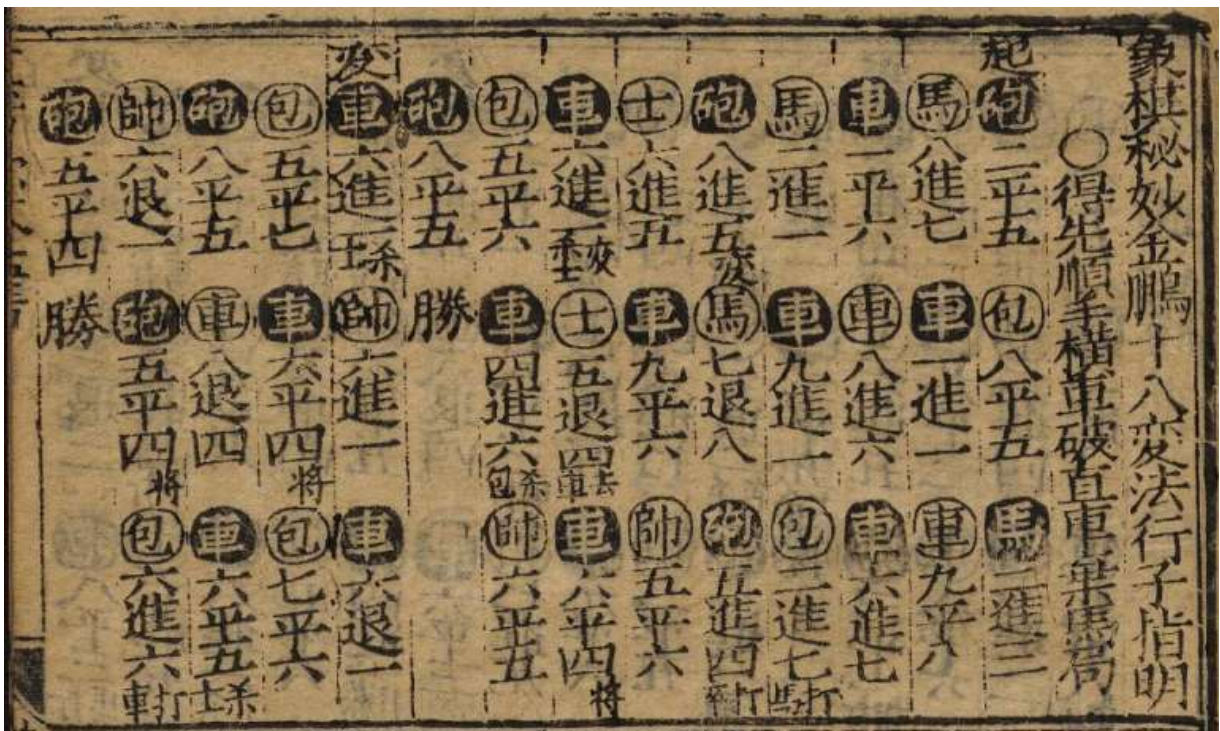 象棋秘妙金鵬十八変法行子指明
○得先順手横車破直車棄馬局
起砲二平五 包八平五 馬二進三
馬八進七 車一進一 車九平八
車一平六 車八進六 車六進七
馬二進一 車九進一 包二進七打馬
砲八進五変 馬七退八 砲五進四打
士六進五 車九平六 帥五平六
車六進一变 士五退四去車 車六平四将
包五平六 車四進六杀包 帥六平五
砲八平五 勝
変車六進一杀士 帥六進一 車六退一
包五平七 車六平四将 包七平六
砲八平五 車八退四 車六平五杀士
帥六退一 砲五平四将 包六進六打車
砲五平四 勝